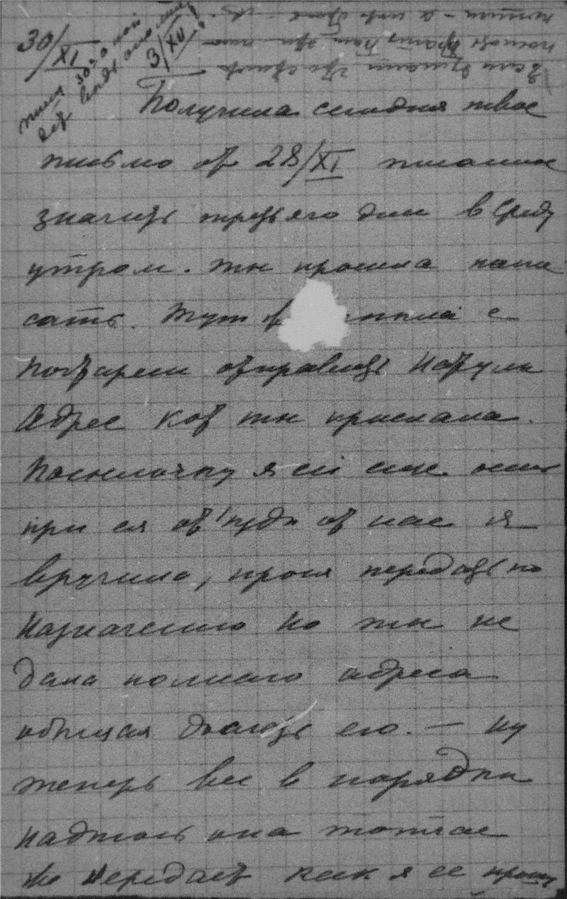 30/XI
3/XII
Получила сегодня твое
письмо от 28/XI
значить третьяго дни в Среду
утром. ты просила напи
сать. Тут с
почтарем отправить Натули
Адрес кот ты прислала.
Посылочку я ей еще
при ея от'езде от нас я
вручила, прося передать по
назначению но ты не
дала полнаго адреса
обещая дослать его. — ну
теперь все в порядки
надеюсь она тотчас
же передает как я ее прошу